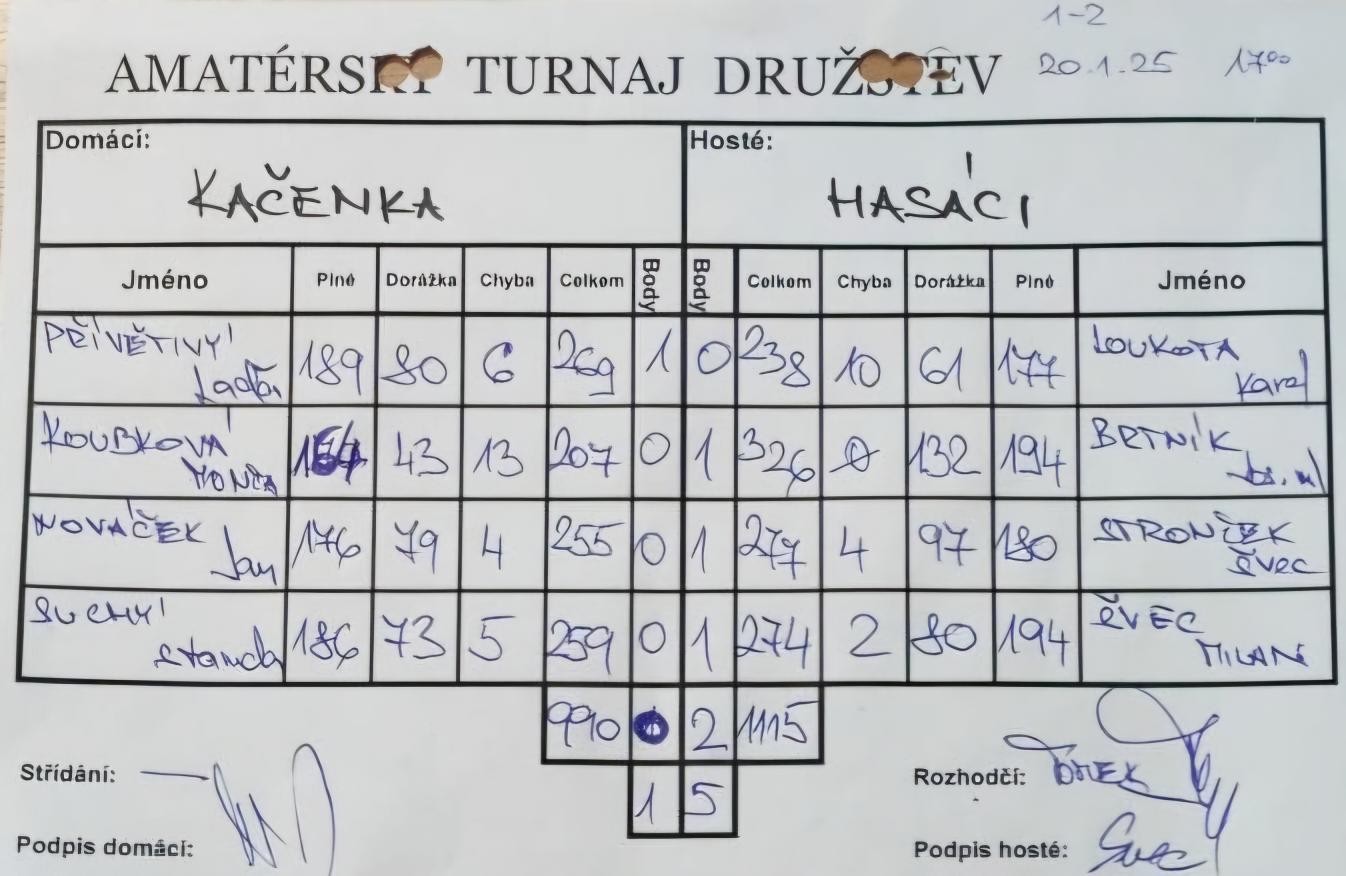 1-2
AMATÉRSKÝ TURNAJ DRUŽSTEV 20.1.25 17⁰⁰
Domácí: Hosté:
KAČENKA HASÁCI
Jméno Plné Dorážka Chyba Colkom Body Body Colkom Chyba Dorážka Plné Jméno
PŘÍVĚTIVÝ 189 80 6 269 1 0 238 10 61 177 LOUKOTA
Laďa Karel
KOUBKOVÁ 164 43 13 207 0 1 326 0 132 194 BRTNÍK
MONČA
NOVÁČEK 176 79 4 255 0 1 277 4 97 180
Jan ŠVEC
SUCHÝ 186 73 5 259 0 1 274 2 80 194 ŠVEC
Standa MILAN
990 0 2 1115
Střídání: — Rozhodčí:
1 5
Podpis domácí: Podpis hosté: Švec